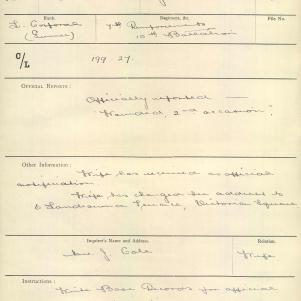 Rank.
Regiment, &c.
File No.
L. Corporal
7th Reinforcements
(Runner)
10th Battalion
C/L
199. 27.
OFFICIAL REPORTS :
Officially reported —
"Wounded, 2nd occasion"
Other Information :
Wife has received an official
notification
Wife has changed her address to
6 Terrace, Victoria Square
Inquirer's Name and Address.
Relation.
J. Cole
Wife
Instructions :
Write Base Records for official